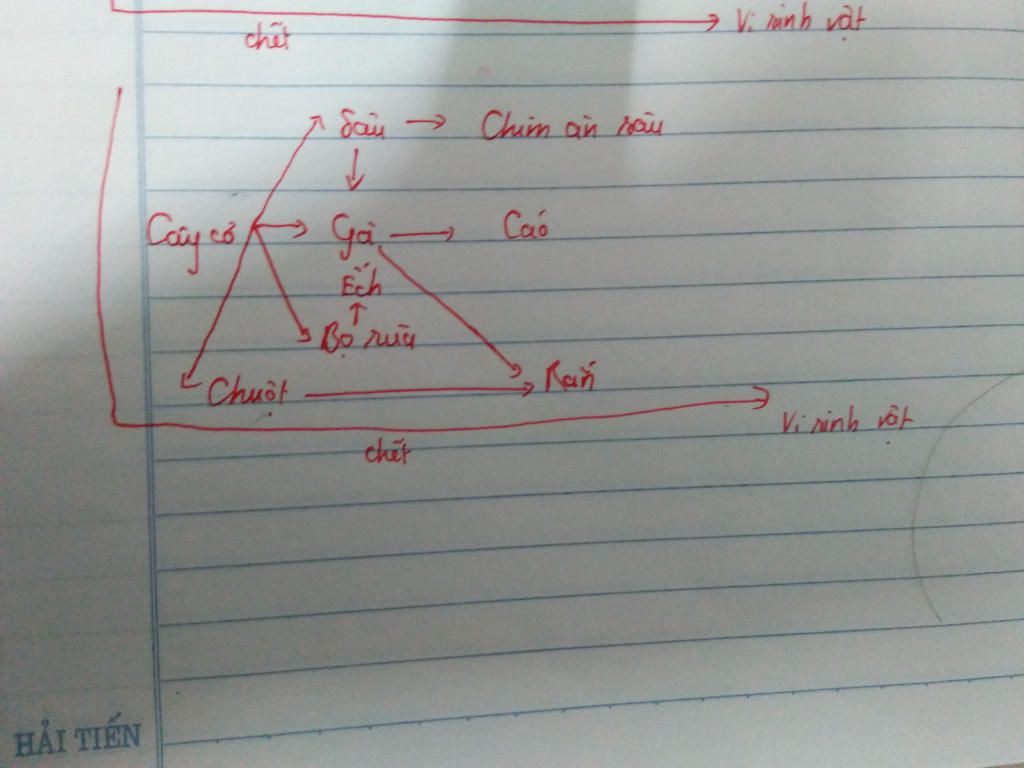 chết → Vi sinh vật
Sâu → Chim ăn sâu
Cây cỏ → Gà → Cáo
Ếch
Bọ rùa
Chuột → Rắn
chết → Vi sinh vật
HẢI TIẾN